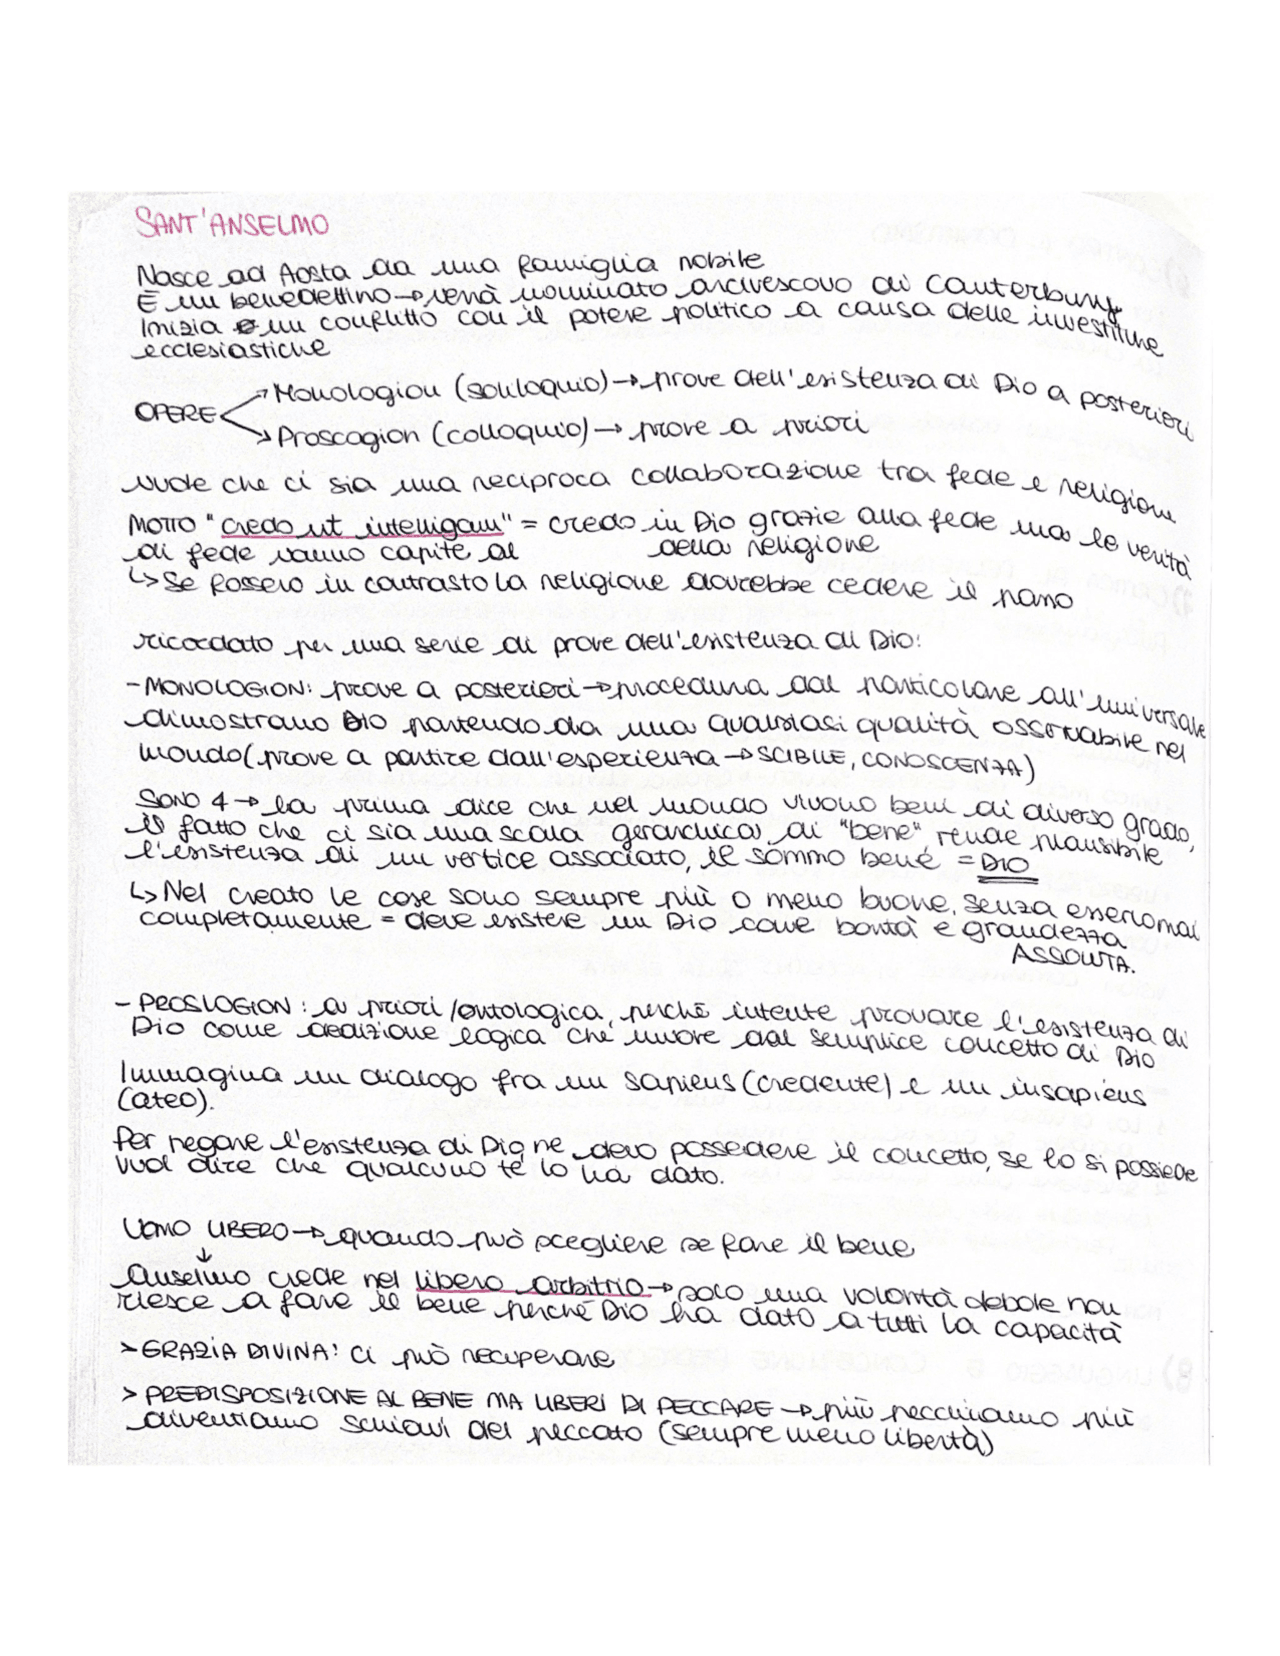 SANT'ANSELMO
Nasce ad Aosta da una famiglia nobile
È un benedettino → verrà nominato arcivescovo di Canterbury
Inizia un conflitto con il potere politico a causa delle investiture
ecclesiastiche
OPERE
Monologion (soliloquio) → prove dell'esistenza di Dio a posteriori
Proscogion (colloquio) → prove a priori
vuole che ci sia una reciproca collaborazione tra fede e religione
MOTTO "credo ut intelligam" = credo in Dio grazie alla fede ma le verità
di fede vanno capite al della religione
↳ Se fossero in contrasto la religione dovrebbe cedere il passo
ricordato per una serie di prove dell'esistenza di Dio:
- MONOLOGION: prove a posteriori → procedura dal particolare all'universale
dimostrano Dio partendo da una qualsiasi qualità osservabile nel
mondo (prove a partire dall'esperienza → SCIBILE, CONOSCENZA)
SONO 4 → la prima dice che nel mondo vivono beni di diverso grado,
il fatto che ci sia una scala gerarchica di "bene" rende plausibile
l'esistenza di un vertice associato, il sommo bene = DIO
↳ Nel creato le cose sono sempre più o meno buone, senza esserlo mai
completamente = deve esistere un Dio come bontà e grandezza
ASSOLUTA.
- PROSLOGION: a priori/ontologica, perché intente provare l'esistenza di
Dio come dedizione logica che muove dal semplice concetto di Dio
Immagina un dialogo fra un sapiens (credente) e un insapiens
(ateo).
Per negare l'esistenza di Dio ne devo possedere il concetto, se lo si possiede
vuol dire che qualcuno te lo ha dato.
UOMO LIBERO → quando può scegliere se fare il bene
↓
Anselmo crede nel libero arbitrio → solo una volontà debole non
riesce a fare il bene perché Dio ha dato a tutti la capacità
> GRAZIA DIVINA: ci può recuperare
> PREDISPOSIZIONE AL BENE MA LIBERI DI PECCARE → più pecchiamo più
diventiamo schiavi del peccato (sempre meno libertà)